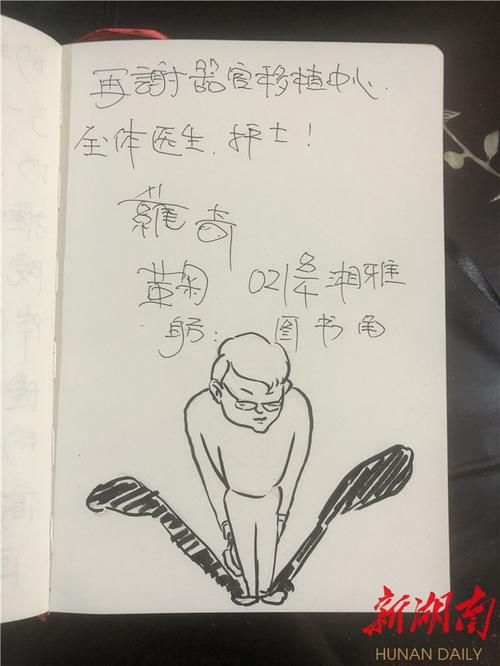 再謝器官移植中心.
全体医生、护士!
奇
鞠 021 8/4 湘雅
躬. 图书角
新湖南
HUNAN DAILY